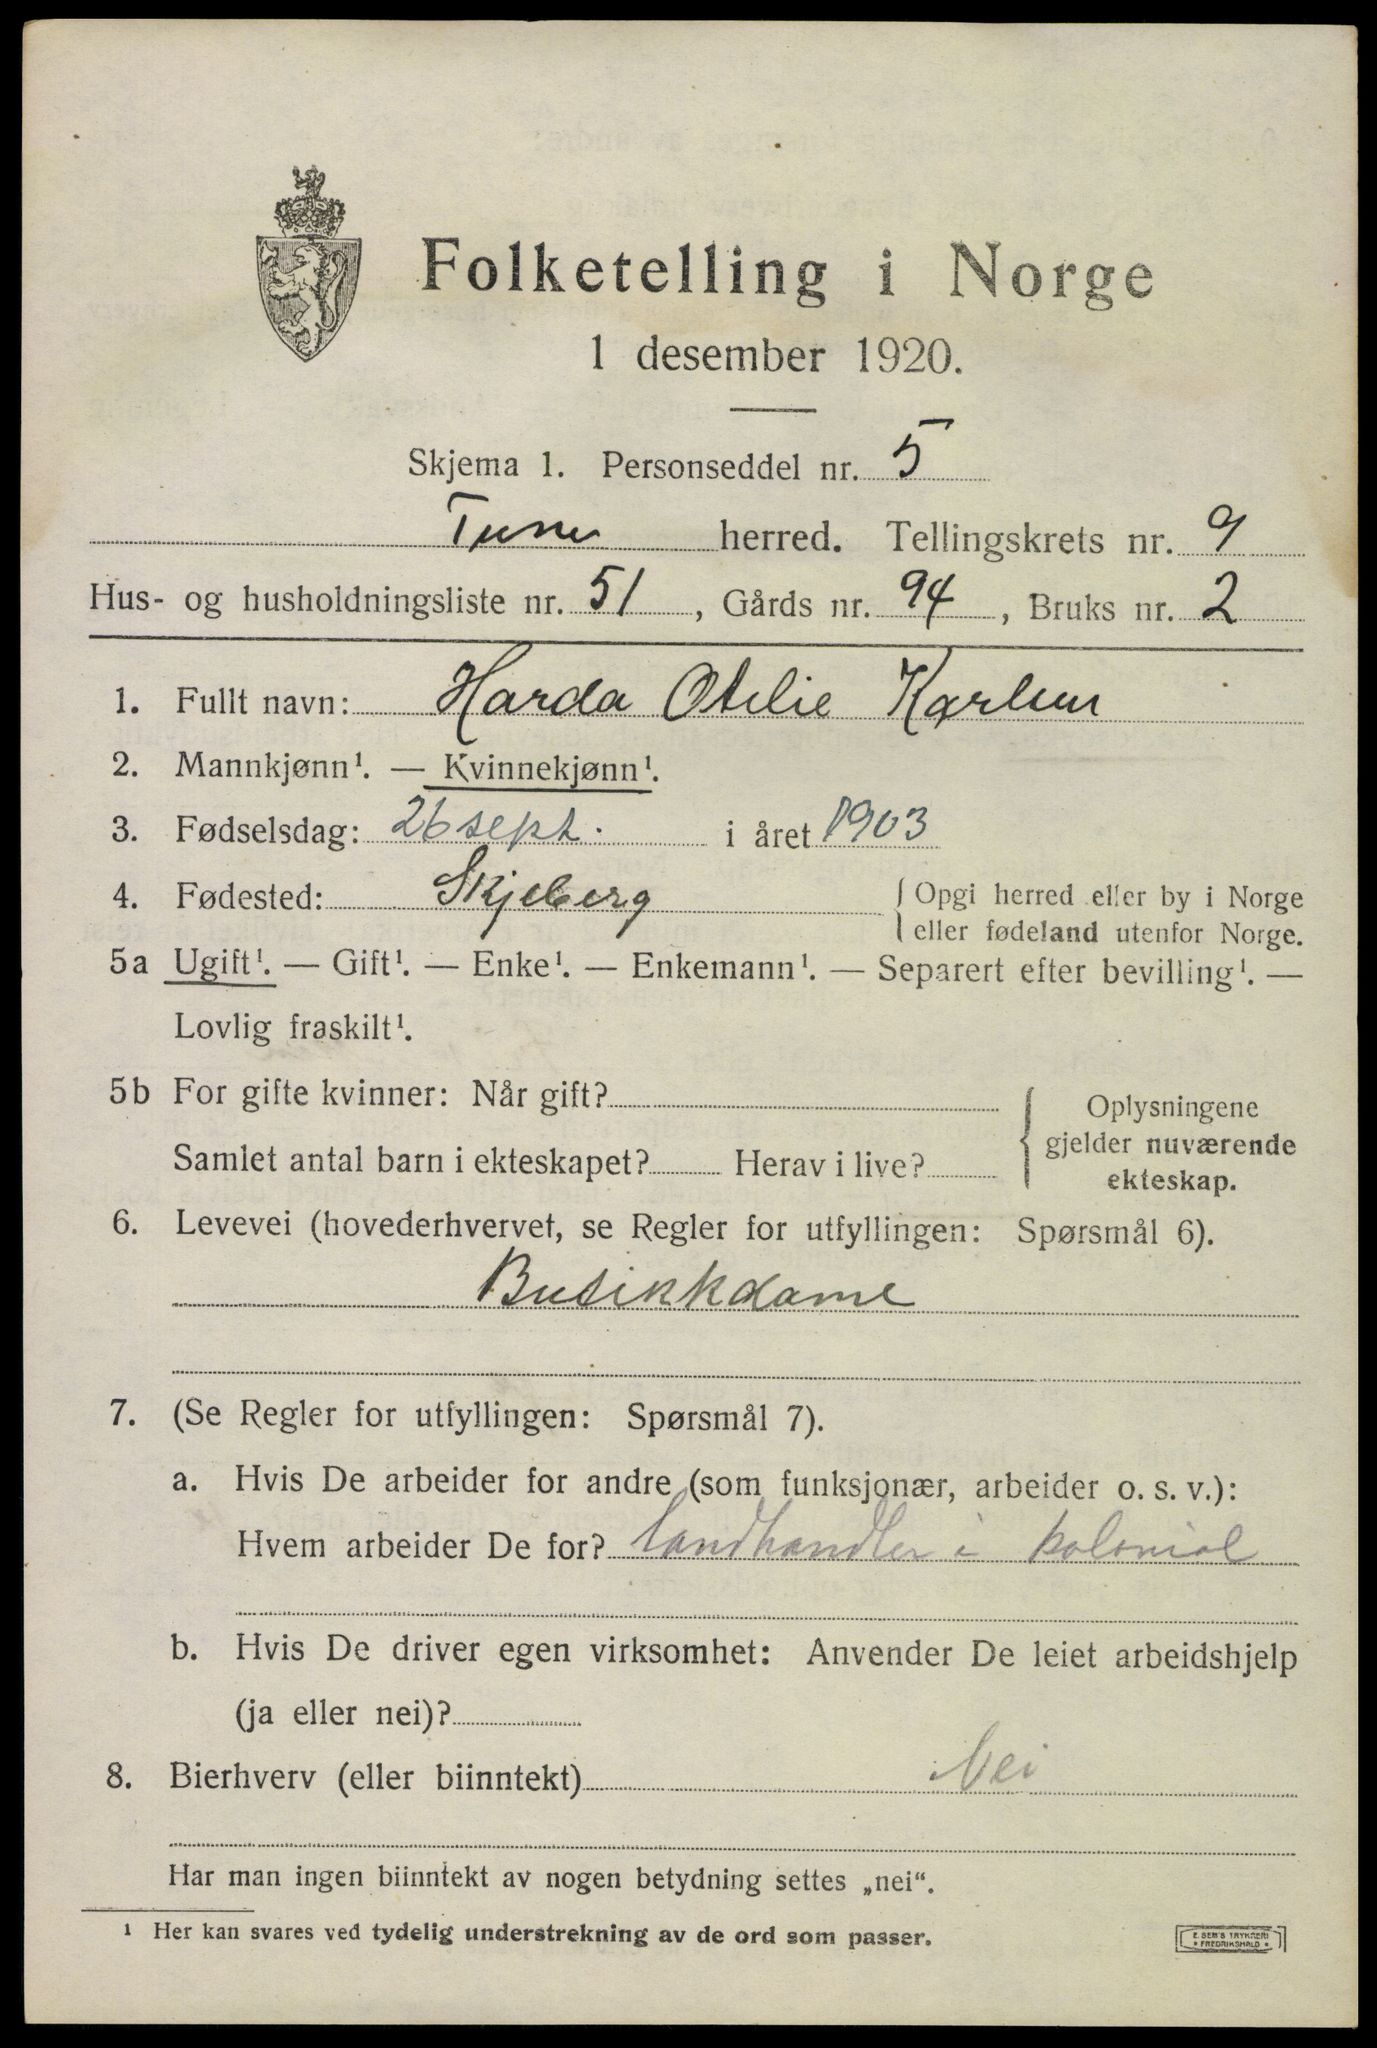 Folketelling i Norge
1 desember 1920.
Skjema 1. Personseddel nr. 5
Tune herred. Tellingskrets nr. 9
Hus- og husholdningsliste nr. 51, Gårds nr. 94, Bruks nr. 2
1. Fullt navn: Harda Otelie Karlsen
2. Mannkjønn¹. — Kvinnekjønn¹.
3. Fødselsdag: 26 sept. i året 1903
4. Fødested: Skjeberg { Opgi herred eller by i Norge
eller fødeland utenfor Norge.
5a Ugift¹. — Gift¹. — Enke¹. — Enkemann¹. — Separert efter bevilling¹. —
Lovlig fraskilt¹.
5b For gifte kvinner: Når gift?
Samlet antal barn i ekteskapet? Herav i live?
Oplysningene
gjelder nuværende
ekteskap.
6. Levevei (hovederhvervet, se Regler for utfyllingen: Spørsmål 6).
Butikkdame
7. (Se Regler for utfyllingen: Spørsmål 7).
a. Hvis De arbeider for andre (som funksjonær, arbeider o. s. v.):
Hvem arbeider De for? Landhandler i kolonial
b. Hvis De driver egen virksomhet: Anvender De leiet arbeidshjelp
(ja eller nei)?
8. Bierhverv (eller biinntekt) Nei
Har man ingen biinntekt av nogen betydning settes „nei“.
¹ Her kan svares ved tydelig understrekning av de ord som passer.
E. SEM'S TRYKKERI
• FREDRIKSHALD •